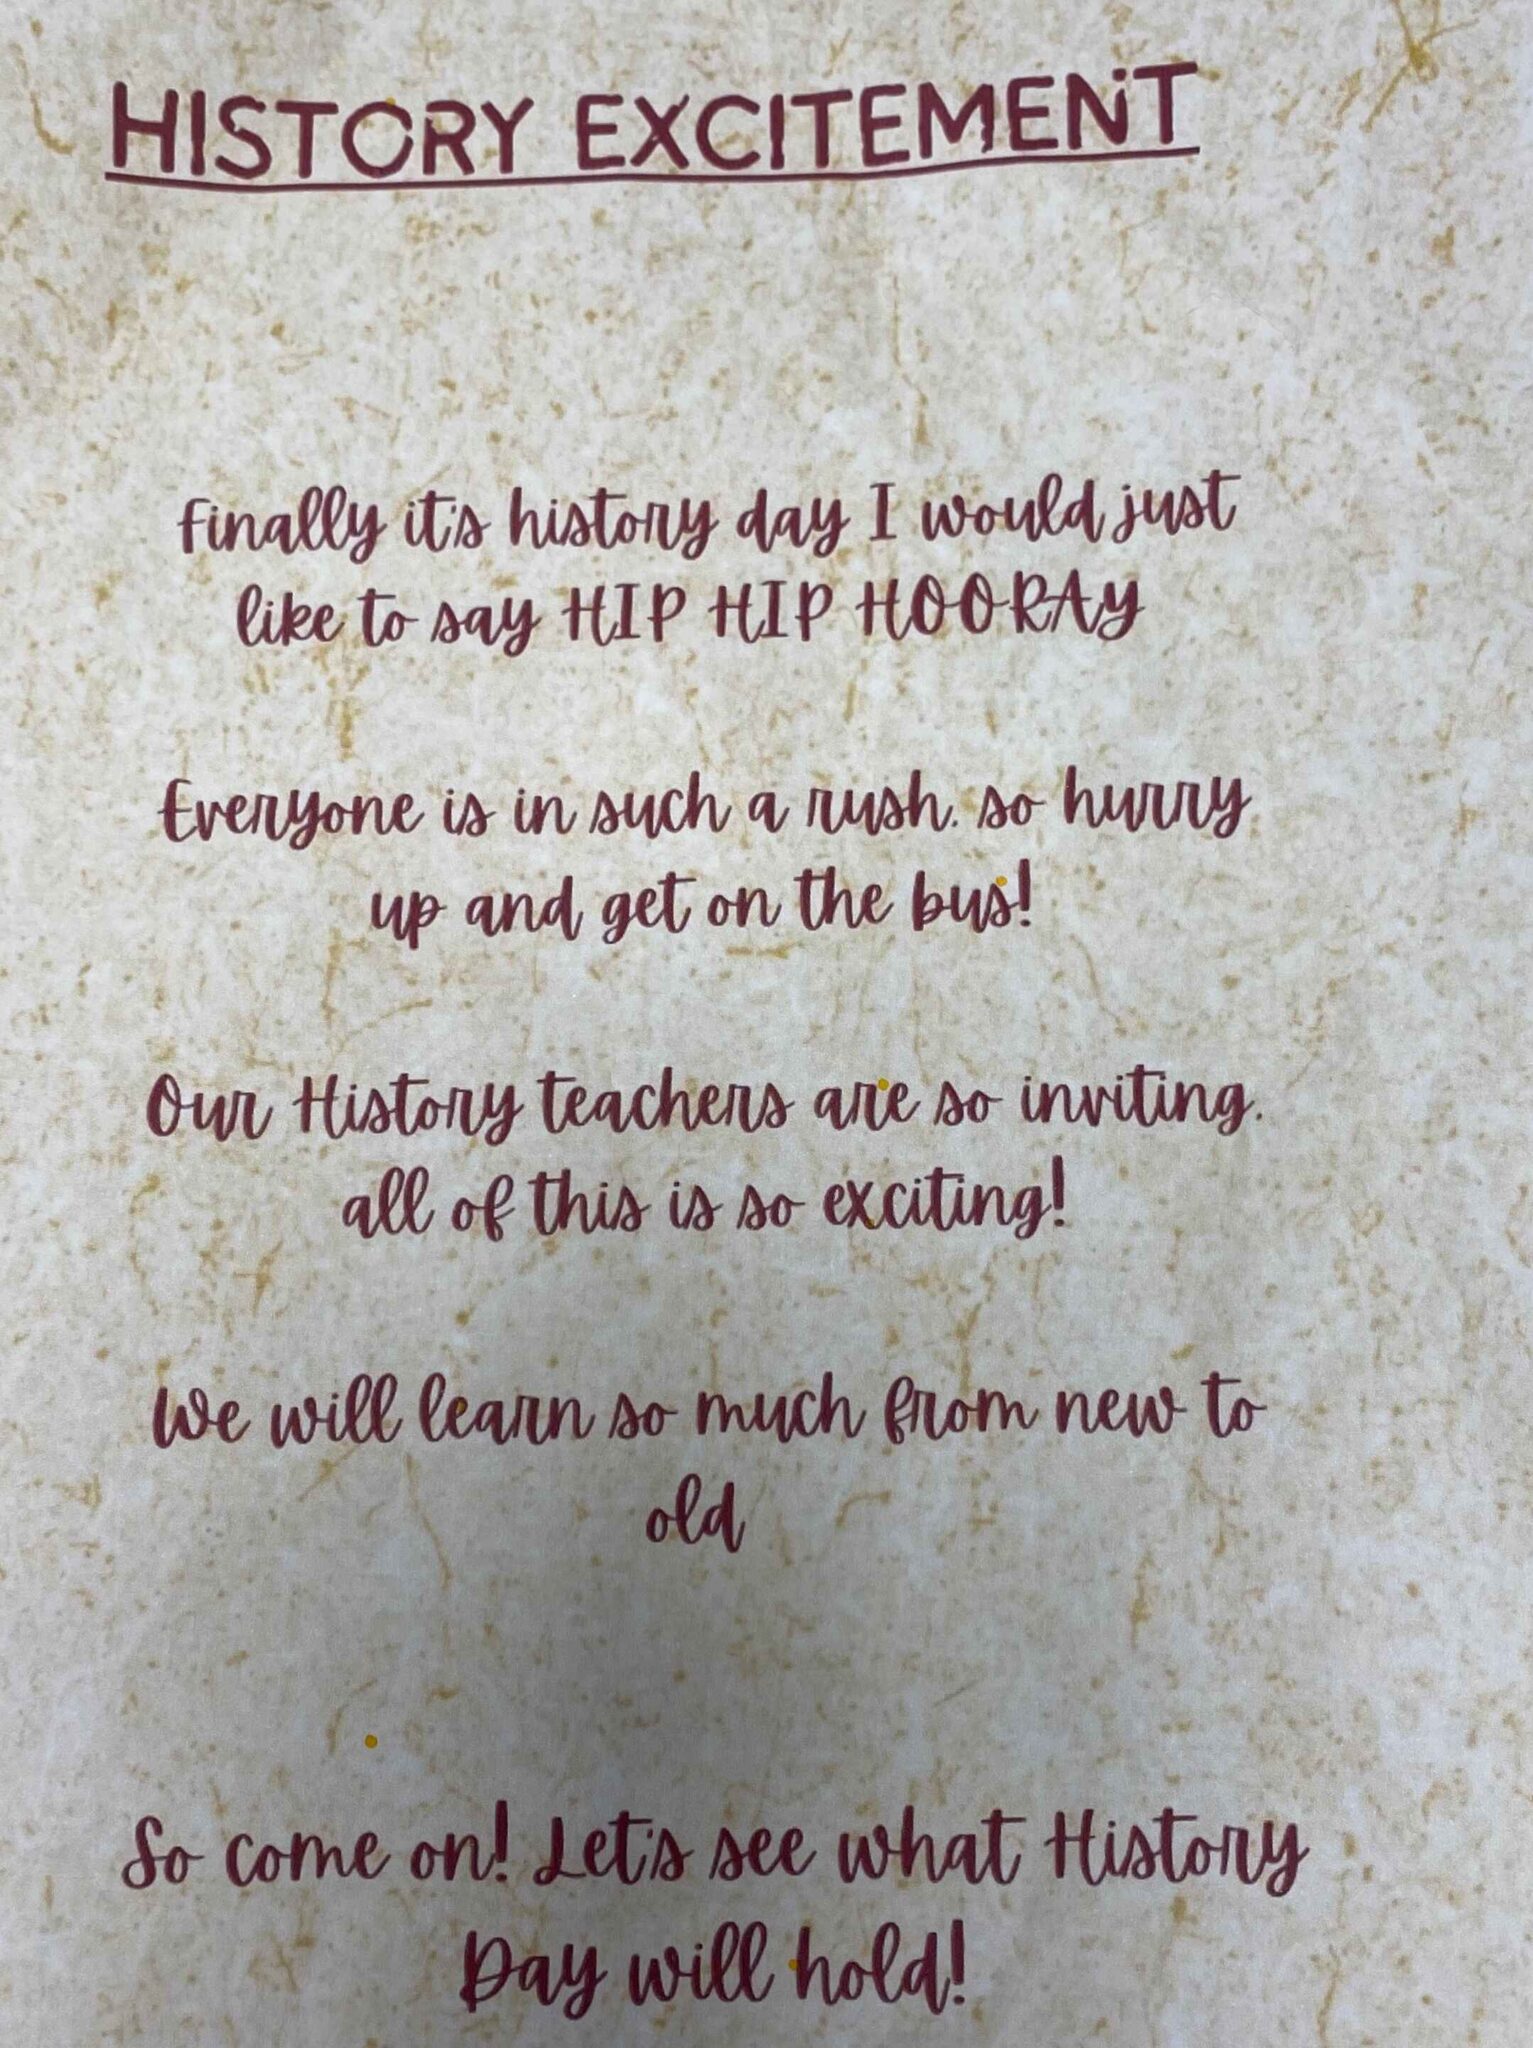 HISTORY EXCITEMENT
Finally it's history day I would just
like to say HIP HIP HOORAY
Everyone is in such a rush, so hurry
up and get on the bus!
Our History teachers are so inviting,
all of this is so exciting!
We will learn so much from new to
old
So come on! Let's see what History
Day will hold!